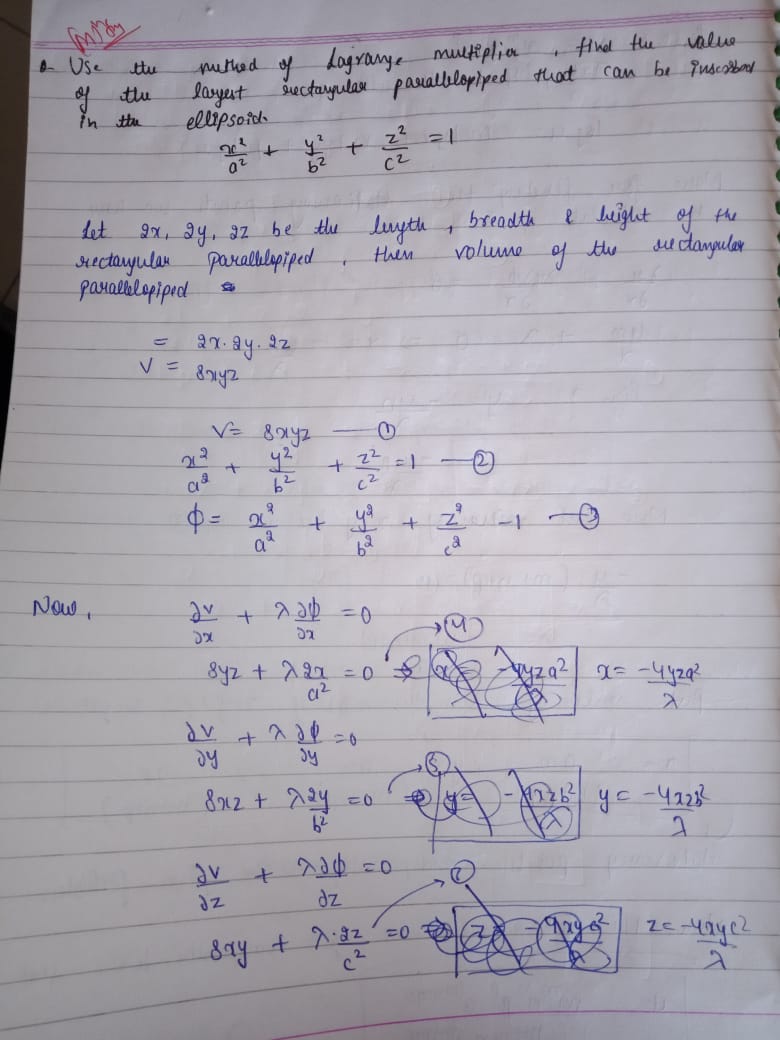 Q- Use the method of Lagrange multiplier, find the value
of the largest rectangular parallelopiped that can be inscribed
in the ellipsoid.
x²/a² + y²/b² + z²/c² = 1
Let 2x, 2y, 2z be the length, breadth & height of the
rectangular parallelopiped, then volume of the rectangular
parallelopiped
= 2x·2y·2z
V = 8xyz
V= 8xyz — ①
x²/a² + y²/b² + z²/c² = 1 — ②
ϕ = x²/a² + y²/b² + z²/c² - 1 — ③
Now, ∂v/∂x + λ ∂ϕ/∂x = 0
④
8yz + λ 2x/a² = 0 x = -4yza²/λ
∂v/∂y + λ ∂ϕ/∂y = 0
⑤
8xz + λ 2y/b² = 0 y = -4xzb²/λ
∂v/∂z + λ ∂ϕ/∂z = 0
8xy + λ·2z/c² = 0 z = -4xyc²/λ